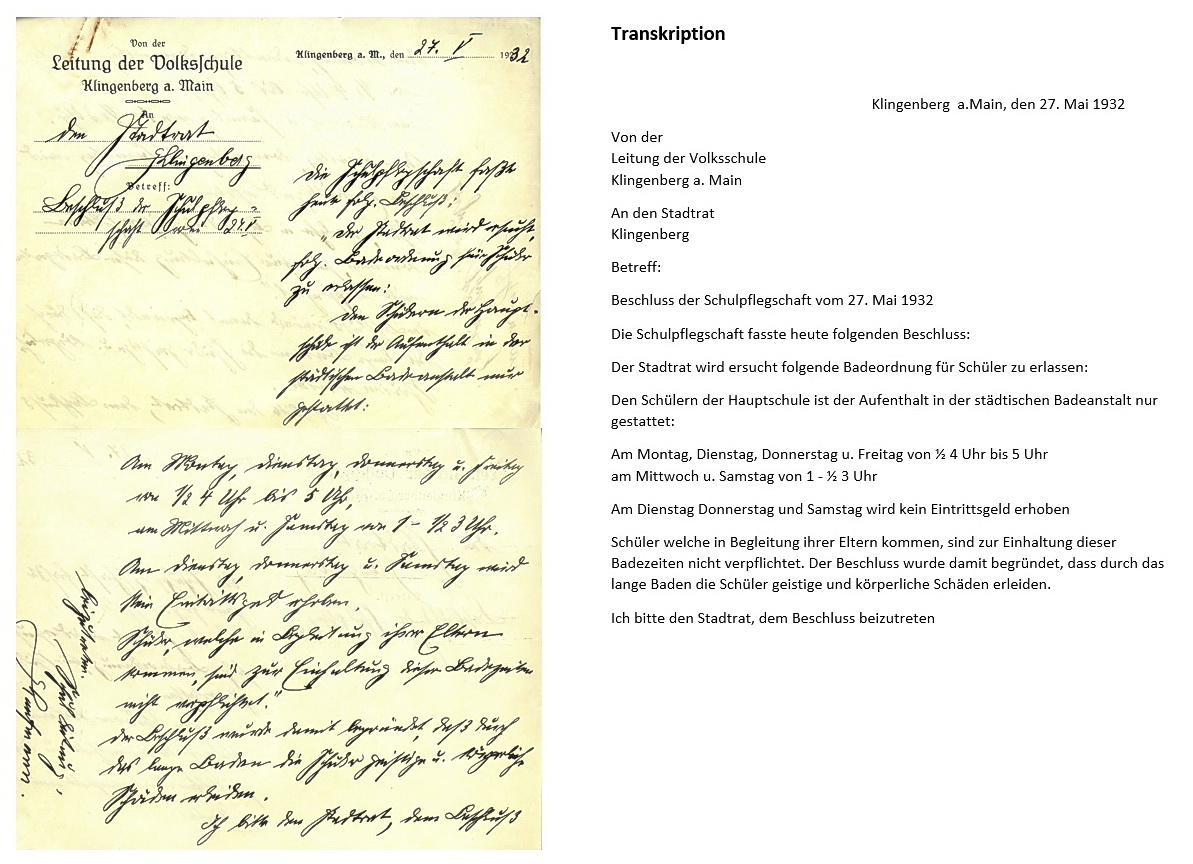 Von der
Leitung der Volksschule
Klingenberg a. Main
Klingenberg a. M., den 27. V 1932
An
den Stadtrat
Klingenberg
Betreff:
Beschluß der Schulpfleg-
schaft vom 27. V
Die Schulpflegschaft faßte
heute folg. Beschluß:
„Der Stadtrat wird ersucht,
folg. Badeordnung für Schüler
zu erlassen:
Den Schülern der Haupt-
schule ist der Aufenthalt in der
städtischen Badeanstalt nur
gestattet:
Am Montag, Dienstag, Donnerstag u. Freitag
von 1/2 4 Uhr bis 5 Uhr,
am Mittwoch u. Samstag von 1 - 1/2 3 Uhr.
Am Dienstag, Donnerstag u. Samstag wird
kein Eintrittsgeld erhoben.
Schüler, welche in Begleitung ihrer Eltern
kommen, sind zur Einhaltung dieser Badezeiten
nicht verpflichtet."
Der Beschluß wurde damit begründet, daß durch
das lange Baden die Schüler geistige u. körperliche
Schäden erleiden.
Ich bitte den Stadtrat, dem Beschluß
beizutreten.
Transkription
Klingenberg a.Main, den 27. Mai 1932
Von der
Leitung der Volksschule
Klingenberg a. Main
An den Stadtrat
Klingenberg
Betreff:
Beschluss der Schulpflegschaft vom 27. Mai 1932
Die Schulpflegschaft fasste heute folgenden Beschluss:
Der Stadtrat wird ersucht folgende Badeordnung für Schüler zu erlassen:
Den Schülern der Hauptschule ist der Aufenthalt in der städtischen Badeanstalt nur
gestattet:
Am Montag, Dienstag, Donnerstag u. Freitag von ½ 4 Uhr bis 5 Uhr
am Mittwoch u. Samstag von 1 - ½ 3 Uhr
Am Dienstag Donnerstag und Samstag wird kein Eintrittsgeld erhoben
Schüler welche in Begleitung ihrer Eltern kommen, sind zur Einhaltung dieser
Badezeiten nicht verpflichtet. Der Beschluss wurde damit begründet, dass durch das
lange Baden die Schüler geistige und körperliche Schäden erleiden.
Ich bitte den Stadtrat, dem Beschluss beizutreten